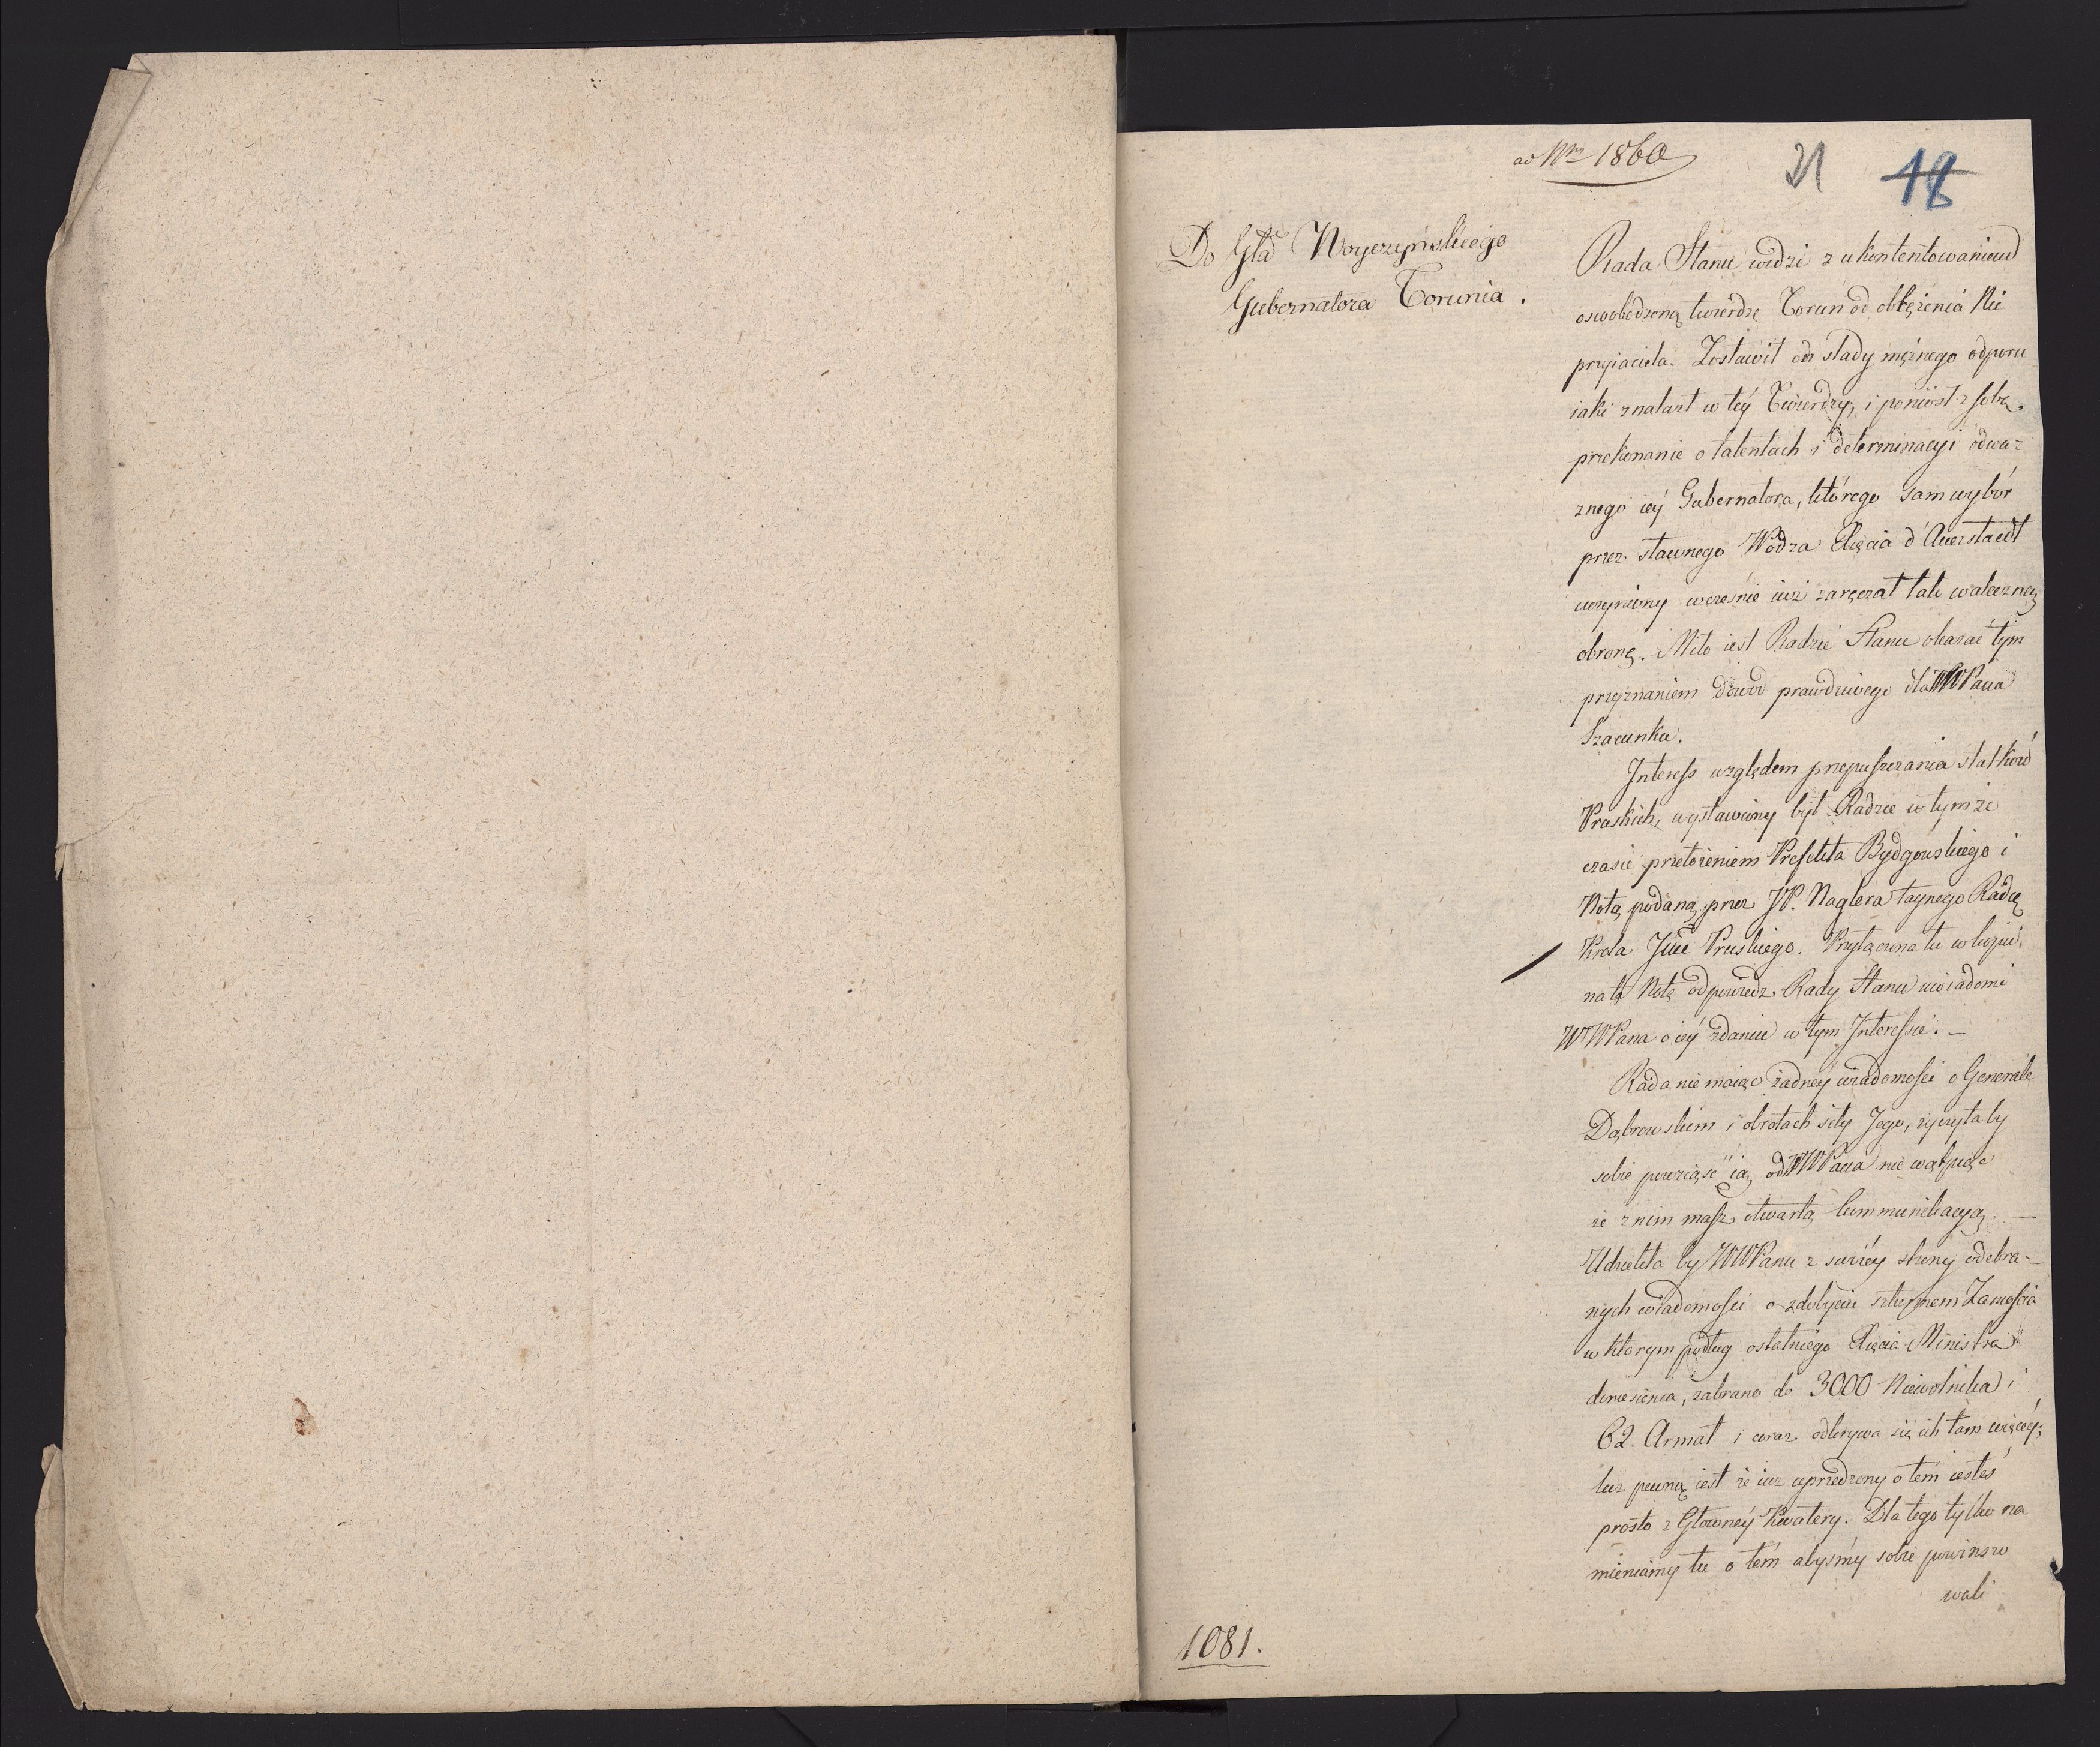 ad Nro 1860
21 18
Do Gła Woyczyńskiego
Gubernatora Torunia.
Rada Stanu widzi z ukontentowaniem
oswobodzoną twierdzę Torun od oblężenia Nie
przyiaciela. Zostawił on slady mężnego odporu
iaki znalazł w téy Twierdzy, i poniósł z sobą
przekonanie o talentach i determinacyi odwa-
znego iéy Gubernatora, którego sam wybór
przez sławnego Wodza Xięcia d'Auerstaedt
uczyniony wcześnie iuż zaręczał tak waleczną
obronę. Miło iest Radzie Stanu okazać tym
przyznaniem dowód prawdziwego dla WWPana
Szacunku.
Interess względem przepuszczania statków
Pruskich, wystawiony był Radzie w tymże
czasie przełożeniem Prefekta Bydgoskiego i
Notą podaną przez JP. Naglera taynego Radcę
Króla Jmci Pruskiego. Przyłączona tu w kopii
na tę Notę odpowiedz Rady Stanu uwiadomi
WWPana o iéy zdaniu w tym Interessie. _
Rada nie maiąc żadnéy wiadomości o Generale
Dąbrowskim i obrotach siły Jego, życzyłaby
sobie powziąść ią od WWPana nie wątpiąc
że z nim masz otwartą kommunikacyą. _
Udzieliła by WWPanu z swéy strony odebra-
nych wiadomości o zdobyciu szturmem Zamościa
w którym podług ostatniego Xięcia Ministra
doniesienia, zabrano do 3000 Niewolnika i
62. Armat i coraz odkrywa się ich tam więcéy;
lecz pewną iest że iuż uprzedzony o tém iesteś
prosto z Głównéy Kwatery. Dla tego tylko na
mieniamy tu o tém abyśmy sobie powinszo
wali
1081.